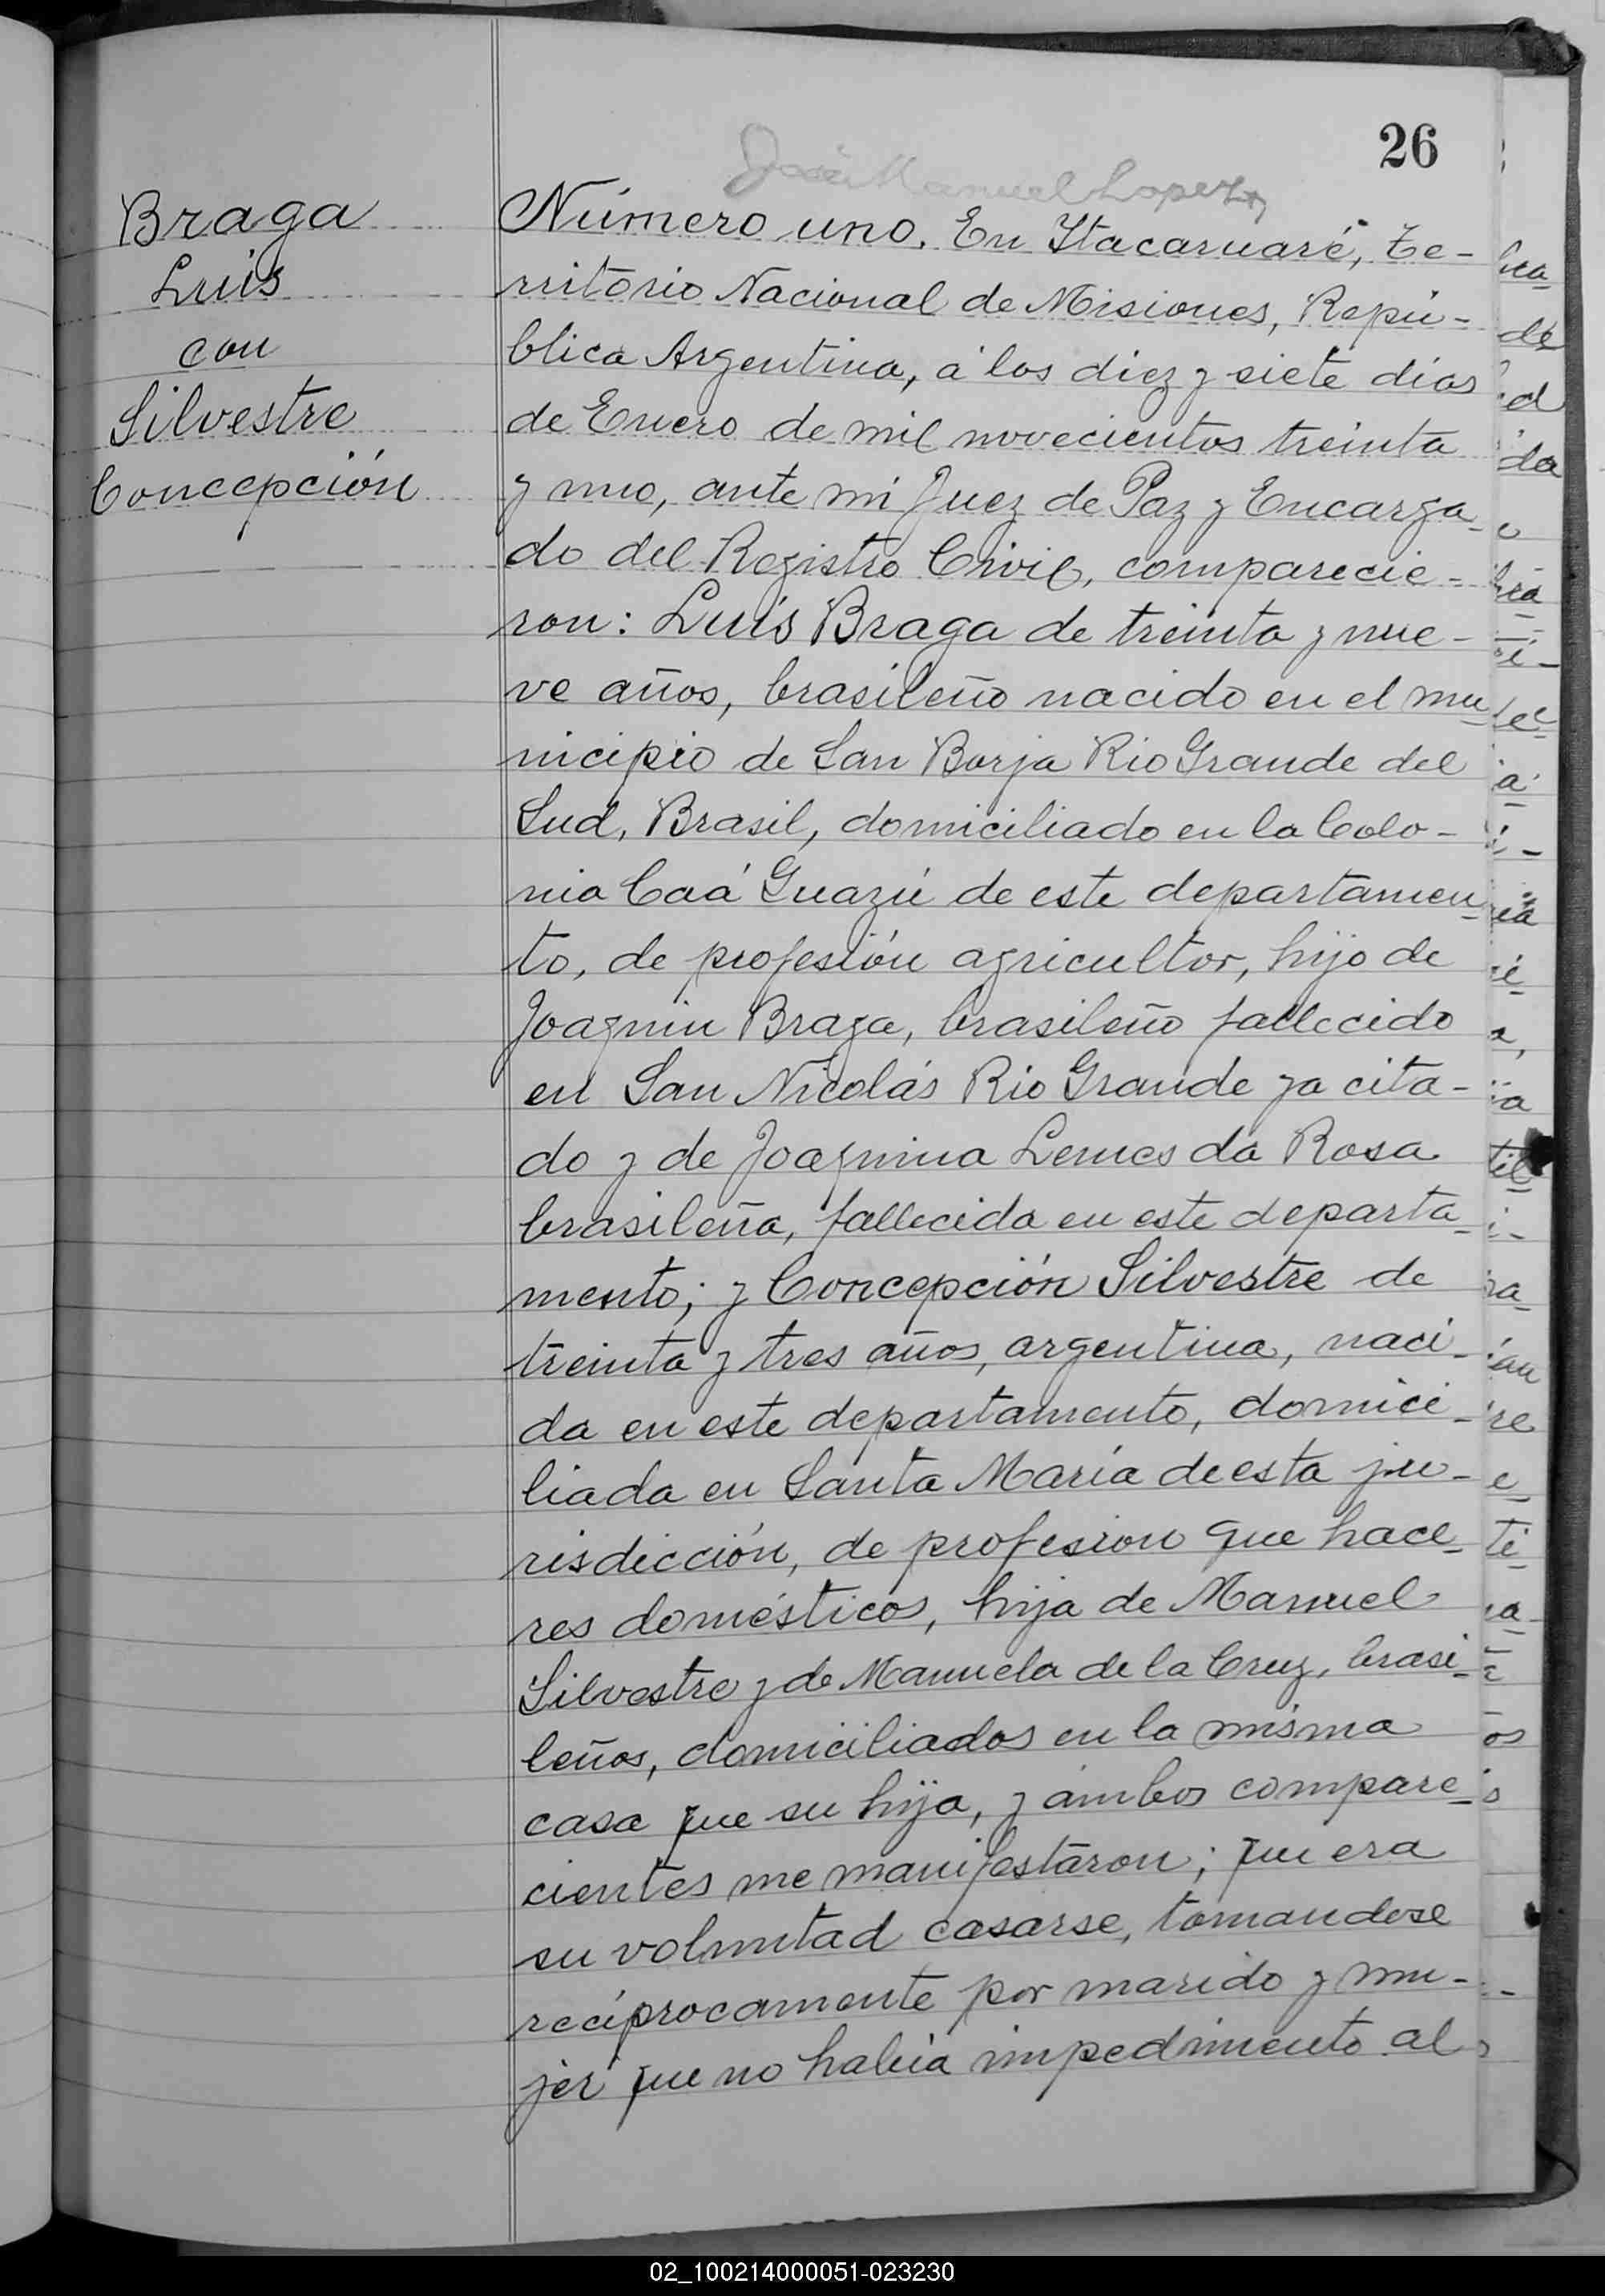 26
José Manuel Lopez
Braga
Luis
con
Silvestre
Concepción
Número uno. En Itacaruaré, Te-
rritorio Nacional de Misiones, Repú-
blica Argentina, á los diez y siete dias
de Enero de mil novecientos treinta
y uno, ante mi Juez de Paz y Encarga-
do del Registro Civil, comparecie-
ron: Luis Braga de treinta y nue-
ve años, brasileño nacido en el mu-
nicipio de San Borja Rio Grande del
Sud, Brasil, domiciliado en la Colo-
nia Caá Guazú de este departamen-
to, de profesión agricultor, hijo de
Joaquin Braga, brasileño fallecido
en San Nicolás Rio Grande ya cita-
do y de Joaquina Lemes da Rosa
brasileña, fallecida en este departa-
mento; y Concepción Silvestre de
treinta y tres años, argentina, naci-
da en este departamento, domici-
liada en Santa María de esta ju-
risdicción, de profesion que hace-
res domésticos, hija de Manuel
Silvestre y de Manuela de la Cruz, brasi-
leños, domiciliados en la misma
casa que su hija, y ámbos compare-
cientes me manifestaron; que era
su voluntad casarse, tomandose
reciprocamente por marido y mu-
jer que no había impedimento al
02_100214000051-023230